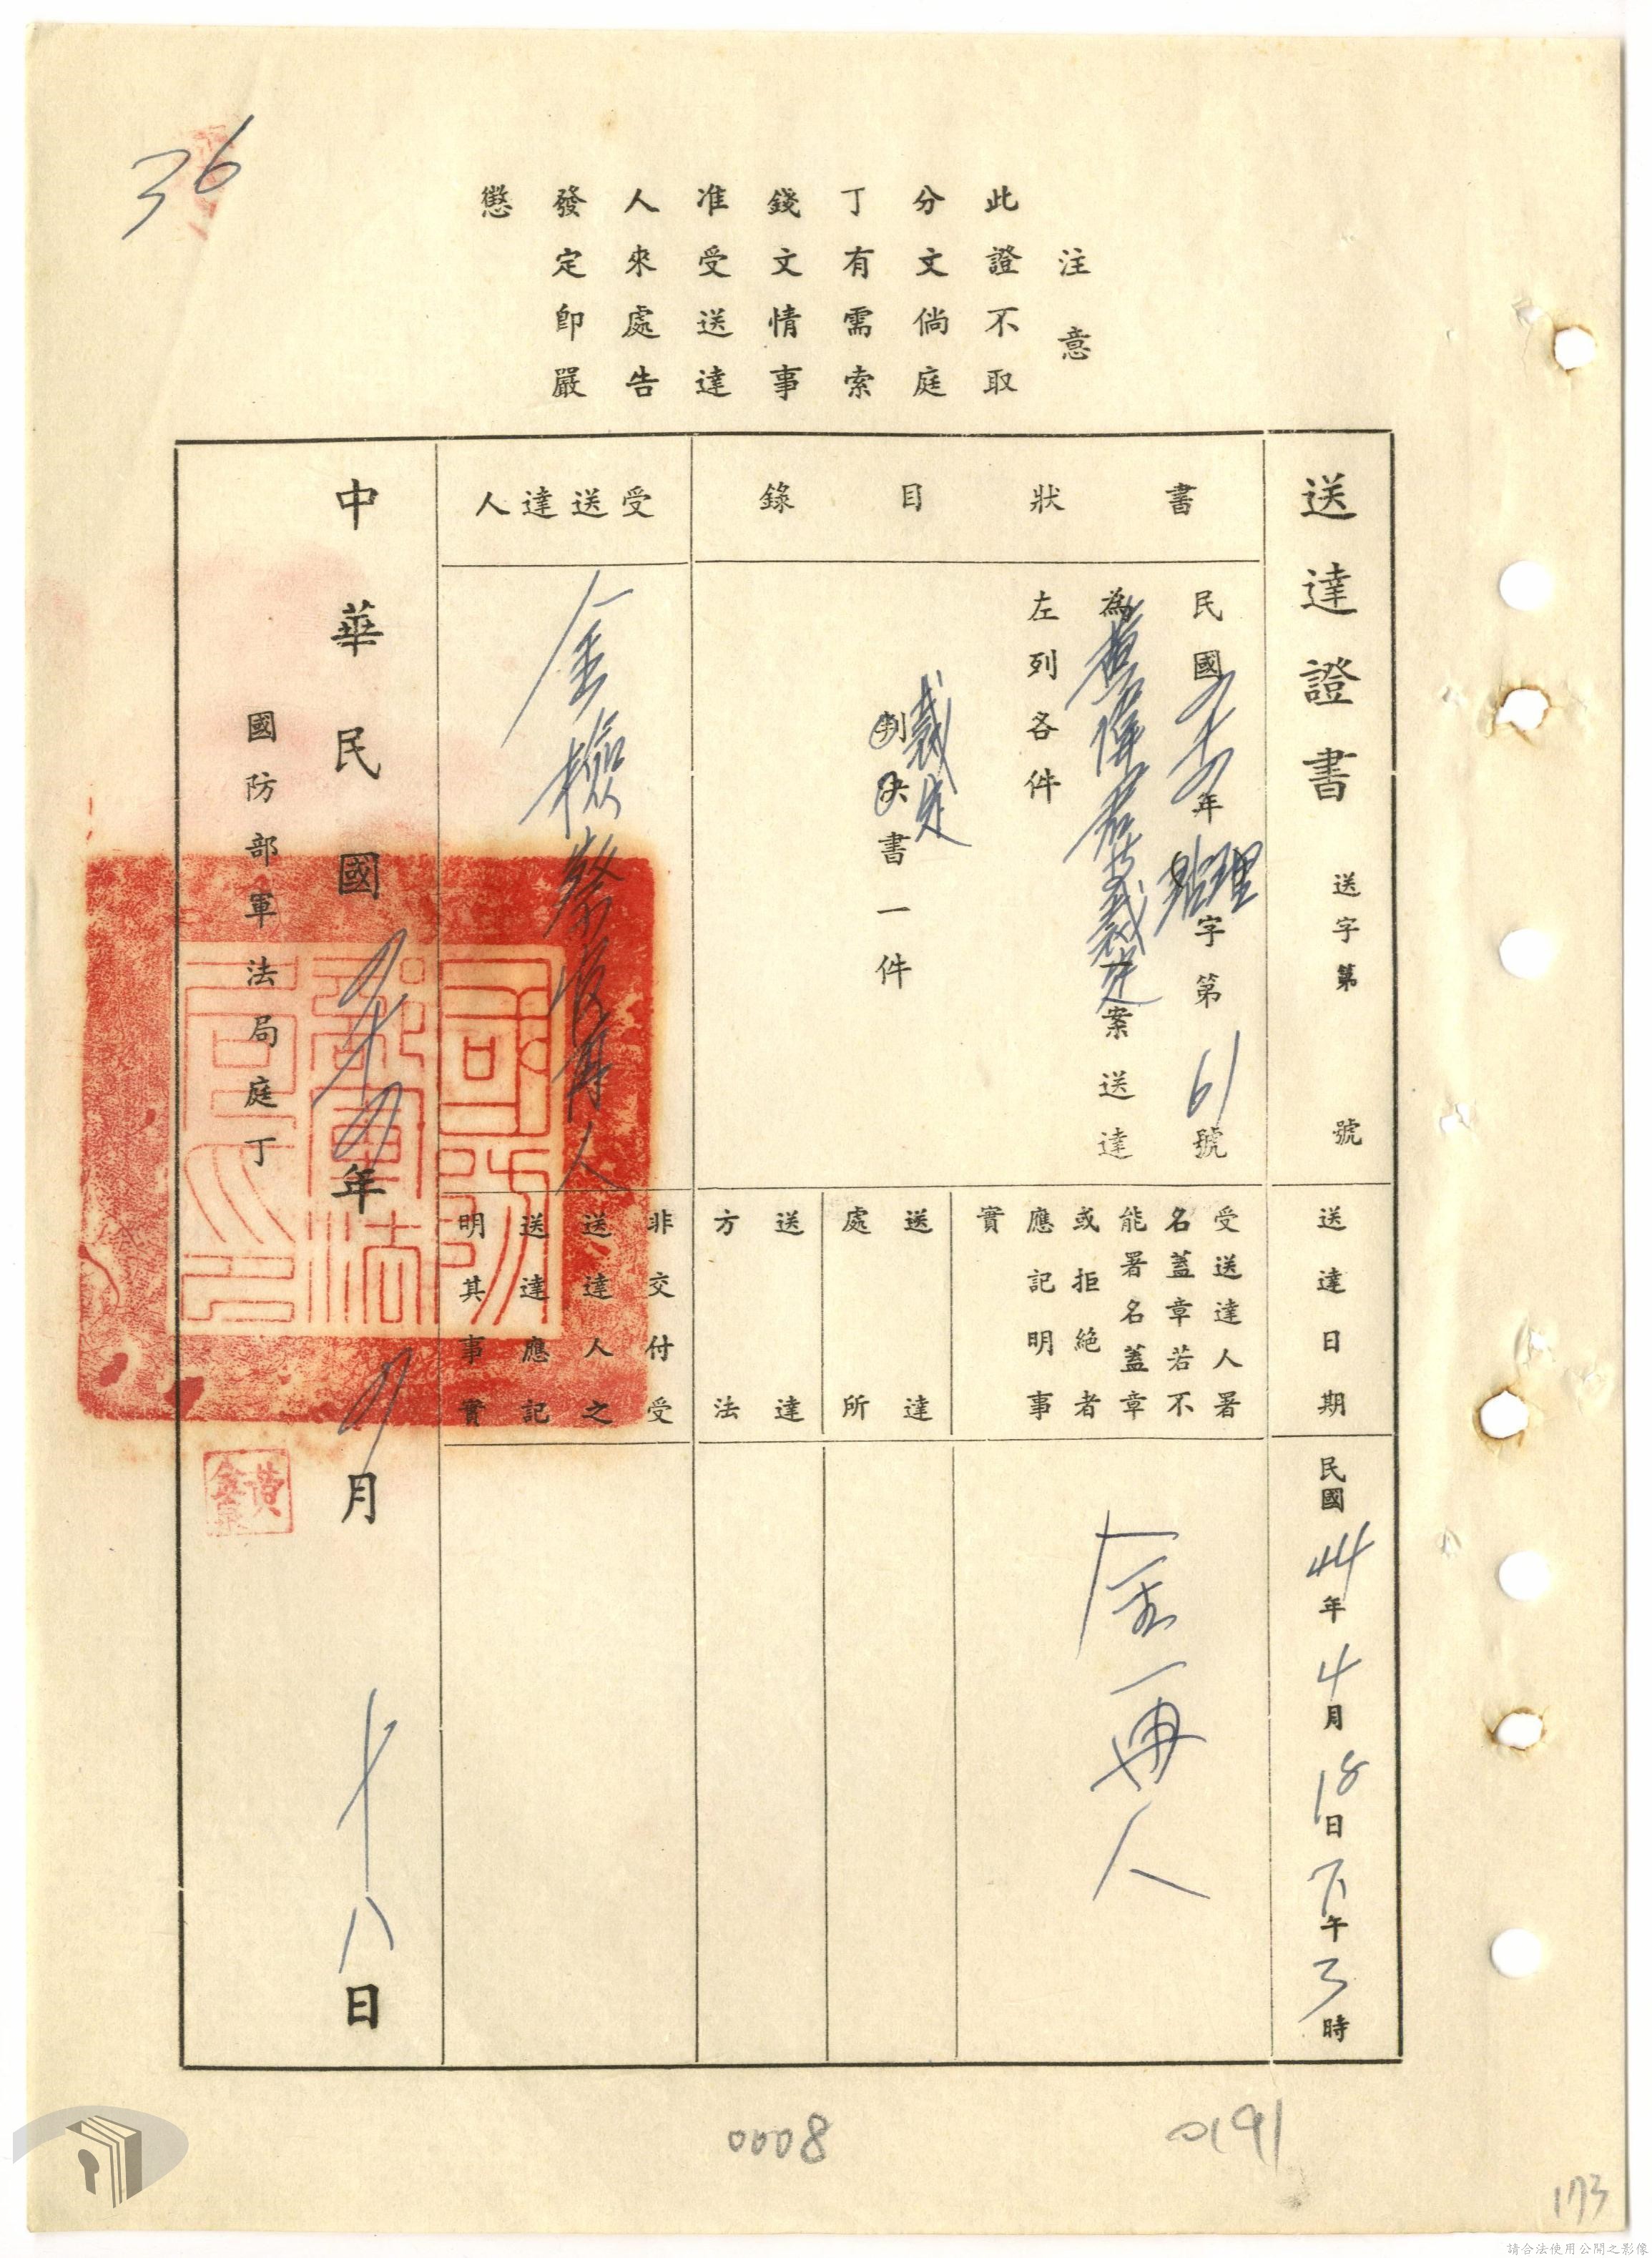 36
注意
此證不取
分文倘庭
丁有需索
錢文情事
准受送達
人來處告
發定即嚴
懲
送達證書
送字第 號
送達日期
民國44年4月18日下午3時
書狀目錄
民國四十四年 理字第61號
為 裁定案送達
左列各件
裁定
判決書一件
受送達人署
名蓋章若不
能署名蓋章
或拒絕者
應記明事
實
金再人
送達
處所
送達
方法
受送達人
金檢察官再人
非交付受
送達人之
送達應記
明其事實
中華民國四十四年四月十八日
國防部軍法局庭丁
國防部軍法局印
黃
0008
0191
173
請合法使用公開之影像